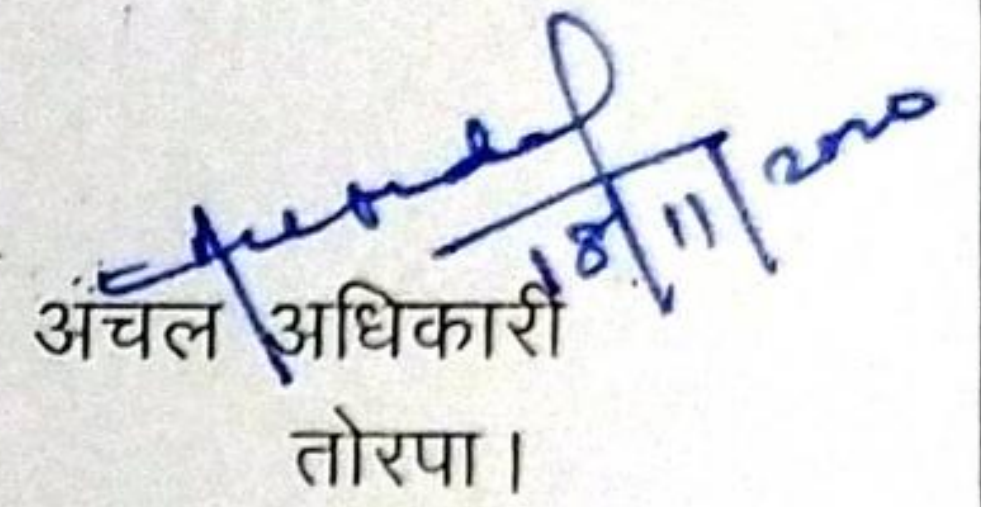 18/11/2020
अंचल अधिकारी
तोरपा।